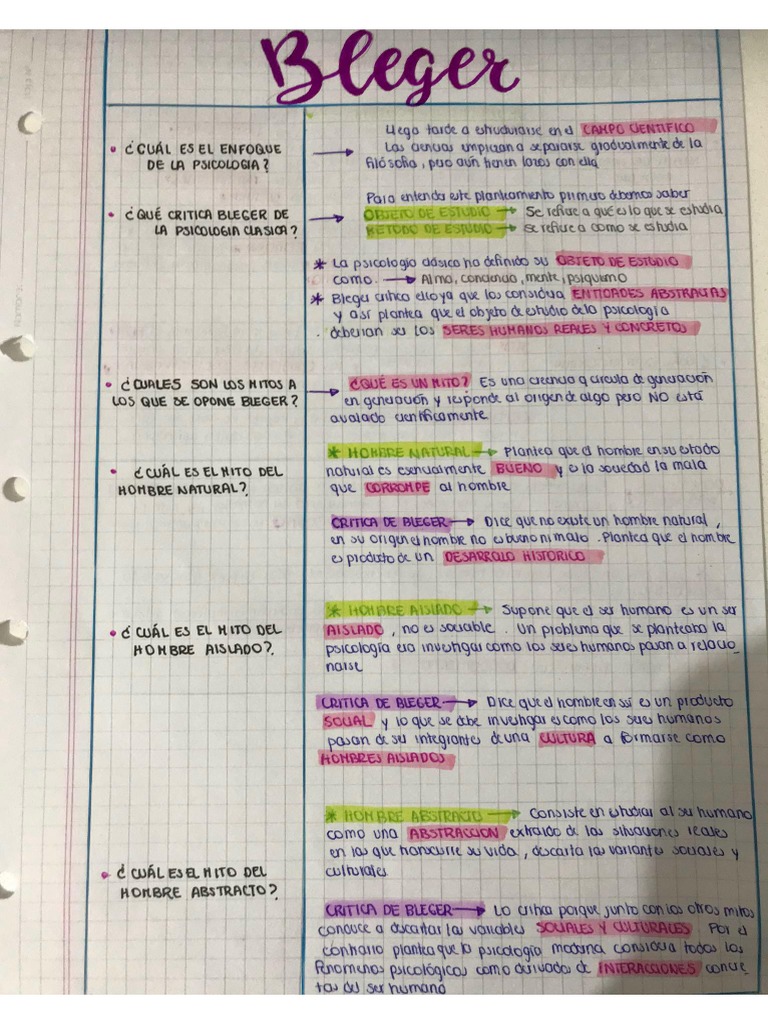 Bleger
• ¿CUÁL ES EL ENFOQUE
DE LA PSICOLOGIA?
→ Llega tarde a estructurarse en el CAMPO CIENTIFICO
Las ciencias empiezan a separarse gradualmente de la
filósofia, pero aún tienen lazos con ella
• ¿QUÉ CRITICA BLEGER DE
LA PSICOLOGIA CLASICA?
→ Para entender este planteamiento primero debemos saber
OBJETO DE ESTUDIO → Se refiere a qué es lo que se estudia
METODO DE ESTUDIO → Se refiere a como se estudia
* La psicología clásica ha definido su OBJETO DE ESTUDIO
como → Alma, conciencia, mente, psiquismo
* Bleger critica ello ya que los considera ENTIDADES ABSTRACTAS
y así plantea que el objeto de estudio de la psicología
deberian ser los SERES HUMANOS REALES Y CONCRETOS
• ¿CUALES SON LOS MITOS A
LOS QUE SE OPONE BLEGER?
→ ¿QUÉ ES UN MITO? Es una creencia q circula de generación
en generación y responde al origen de algo pero NO está
avalado cientificamente.
• ¿CUÁL ES EL MITO DEL
HOMBRE NATURAL?
* HOMBRE NATURAL → Plantea que el hombre en su estado
natural es esencialmente BUENO y es la sociedad la mala
que CORROMPE al hombre
CRITICA DE BLEGER → Dice que no existe un hombre natural,
en su origen el hombre no es bueno ni malo. Plantea que el hombre
es producto de un DESARROLLO HISTORICO
• ¿CUÁL ES EL MITO DEL
HOMBRE AISLADO?
* HOMBRE AISLADO → Supone que el ser humano es un ser
AISLADO, no es sociable. Un problema que se planteaba la
psicología era investigar como los seres humanos pasan a relacio_
narse
CRITICA DE BLEGER → Dice que el hombre en sí es un producto
SOCIAL y lo que se debe investigar es como los seres humanos
pasan de ser integrantes de una CULTURA a formarse como
HOMBRES AISLADOS
• ¿CUÁL ES EL MITO DEL
HOMBRE ABSTRACTO?
* HOMBRE ABSTRACTO → Consiste en estudiar al ser humano
como una ABSTRACCION extraido de las situaciones reales
en las que transcurre su vida, descarta las variantes sociales y
culturales
CRITICA DE BLEGER → Lo critica porque junto con los otros mitos
conduce a descartar las variables SOCIALES Y CULTURALES. Por el
contrario plantea que la psicología moderna considera todos los
fenomenos psicológicos como derivados de INTERACCIONES concre_
tas del ser humano